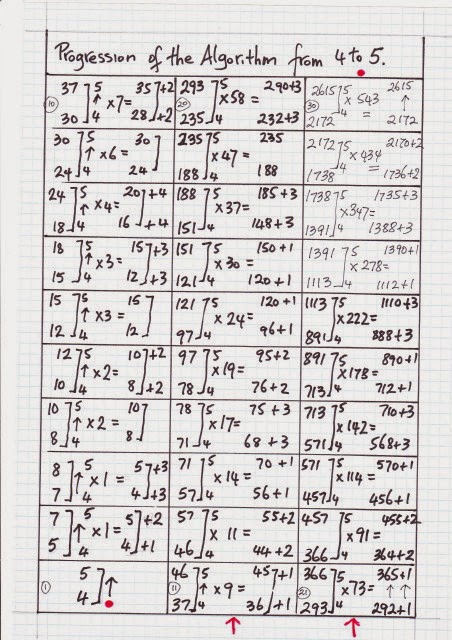 Progression of the Algorithm from 4 to 5.
37 ] 5 ↑ x7= 35 ] +2 293 ] 5 x58 = 290+3 2615 ] 5 x 543 2615
10 30 ] 4 28 ] +2 20 235 ] 4 232+3 30 2172 ] 4 = ↑ 2172
30 ] 5 ↑ x6= 30 ] 235 ] 5 x 47= 235 2172 ] 5 x 434 2170+2
24 ] 4 24 ] 188 ] 4 188 1738 ] 4 = 1736+2
24 ] 5 ↑ x4= 20 ] +4 188 ] 5 x37= 185+3 1738 ] 5 x347= 1735+3
18 ] 4 16 ] +4 151 ] 4 148+3 1391 ] 4 1388+3
18 ] 5 ↑ x3= 15 ] +3 151 ] 5 x 30= 150+1 1391 ] 5 x278= 1390+1
15 ] 4 12 ] +3 121 ] 4 120+1 1113 ] 4 1112+1
15 ] 5 ↑ x3= 15 ] 121 ] 5 x 24= 120+1 1113 ] 5 x222= 1110+3
12 ] 4 12 ] 97 ] 4 96+1 891 ] 4 888+3
12 ] 5 ↑ x2= 10 ] +2 97 ] 5 x19= 95+2 891 ] 5 x178= 890+1
10 ] 4 8 ] +2 78 ] 4 76+2 713 ] 4 712+1
10 ] 5 ↑ x2= 10 ] 78 ] 5 x17= 75+3 713 ] 5 x142= 710+3
8 ] 4 8 ] 71 ] 4 68+3 571 ] 4 568+3
8 ] 5 ↑ x1= 5 ] +3 71 ] 5 x14= 70+1 571 ] 5 x114= 570+1
7 ] 4 4 ] +3 57 ] 4 56+1 457 ] 4 456+1
7 ] 5 ↑ x1= 5 ] +2 57 ] 5 x 11= 55+2 457 ] 5 x91= 455+2
5 ] 4 4 ] +1 46 ] 4 44+2 366 ] 4 364+2
5 ] ↑ 46 ] 5 ↑ x9= 45 ] +1 366 ] 5 x73= 365+1
1 4 ] 11 37 ] 4 36 ] +1 21 293 ] 4 ↑ ↑ 292+1
↑ ↑